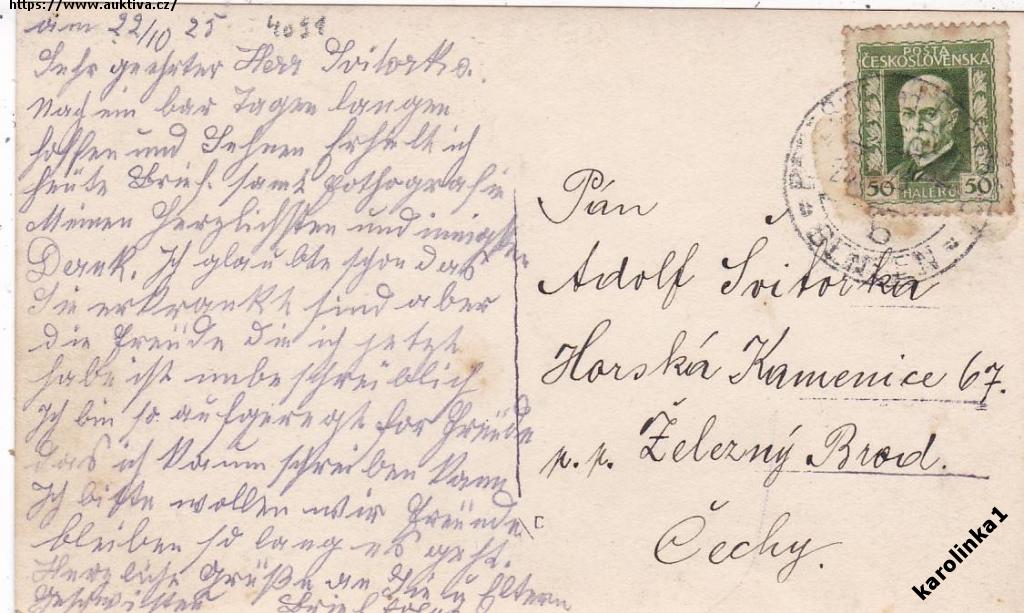 https://www.auktiva.cz/
am 22/10 25 4091
Sehr geehrter Herr Svitorka.
Nach ein bar Tagen langen
hoffen und Sehnen Erhielt ich
heute Brief. samt Fothografie
Meinen Herzlichsten und innigsten
Dank. Ich glaubte schon das
Sie erkrankt sind aber
die Freude die ich jetzt
habe ist unbeschreiblich
Ich bin so aufgeregt for Freude
das ich kaum schreiben kann
Ich bitte wollen wir Freunde
bleiben so lang es geht.
Herzliche Grüße an Sie u Eltern
Geschwister Brief folgt
POSTA
ČESKOSLOVENSKA
50 HALERU 50
b
Pán
Adolf Svitorka
Horská Kamenice 67.
p. p. Železný Brod.
Čechy.
karolinka1